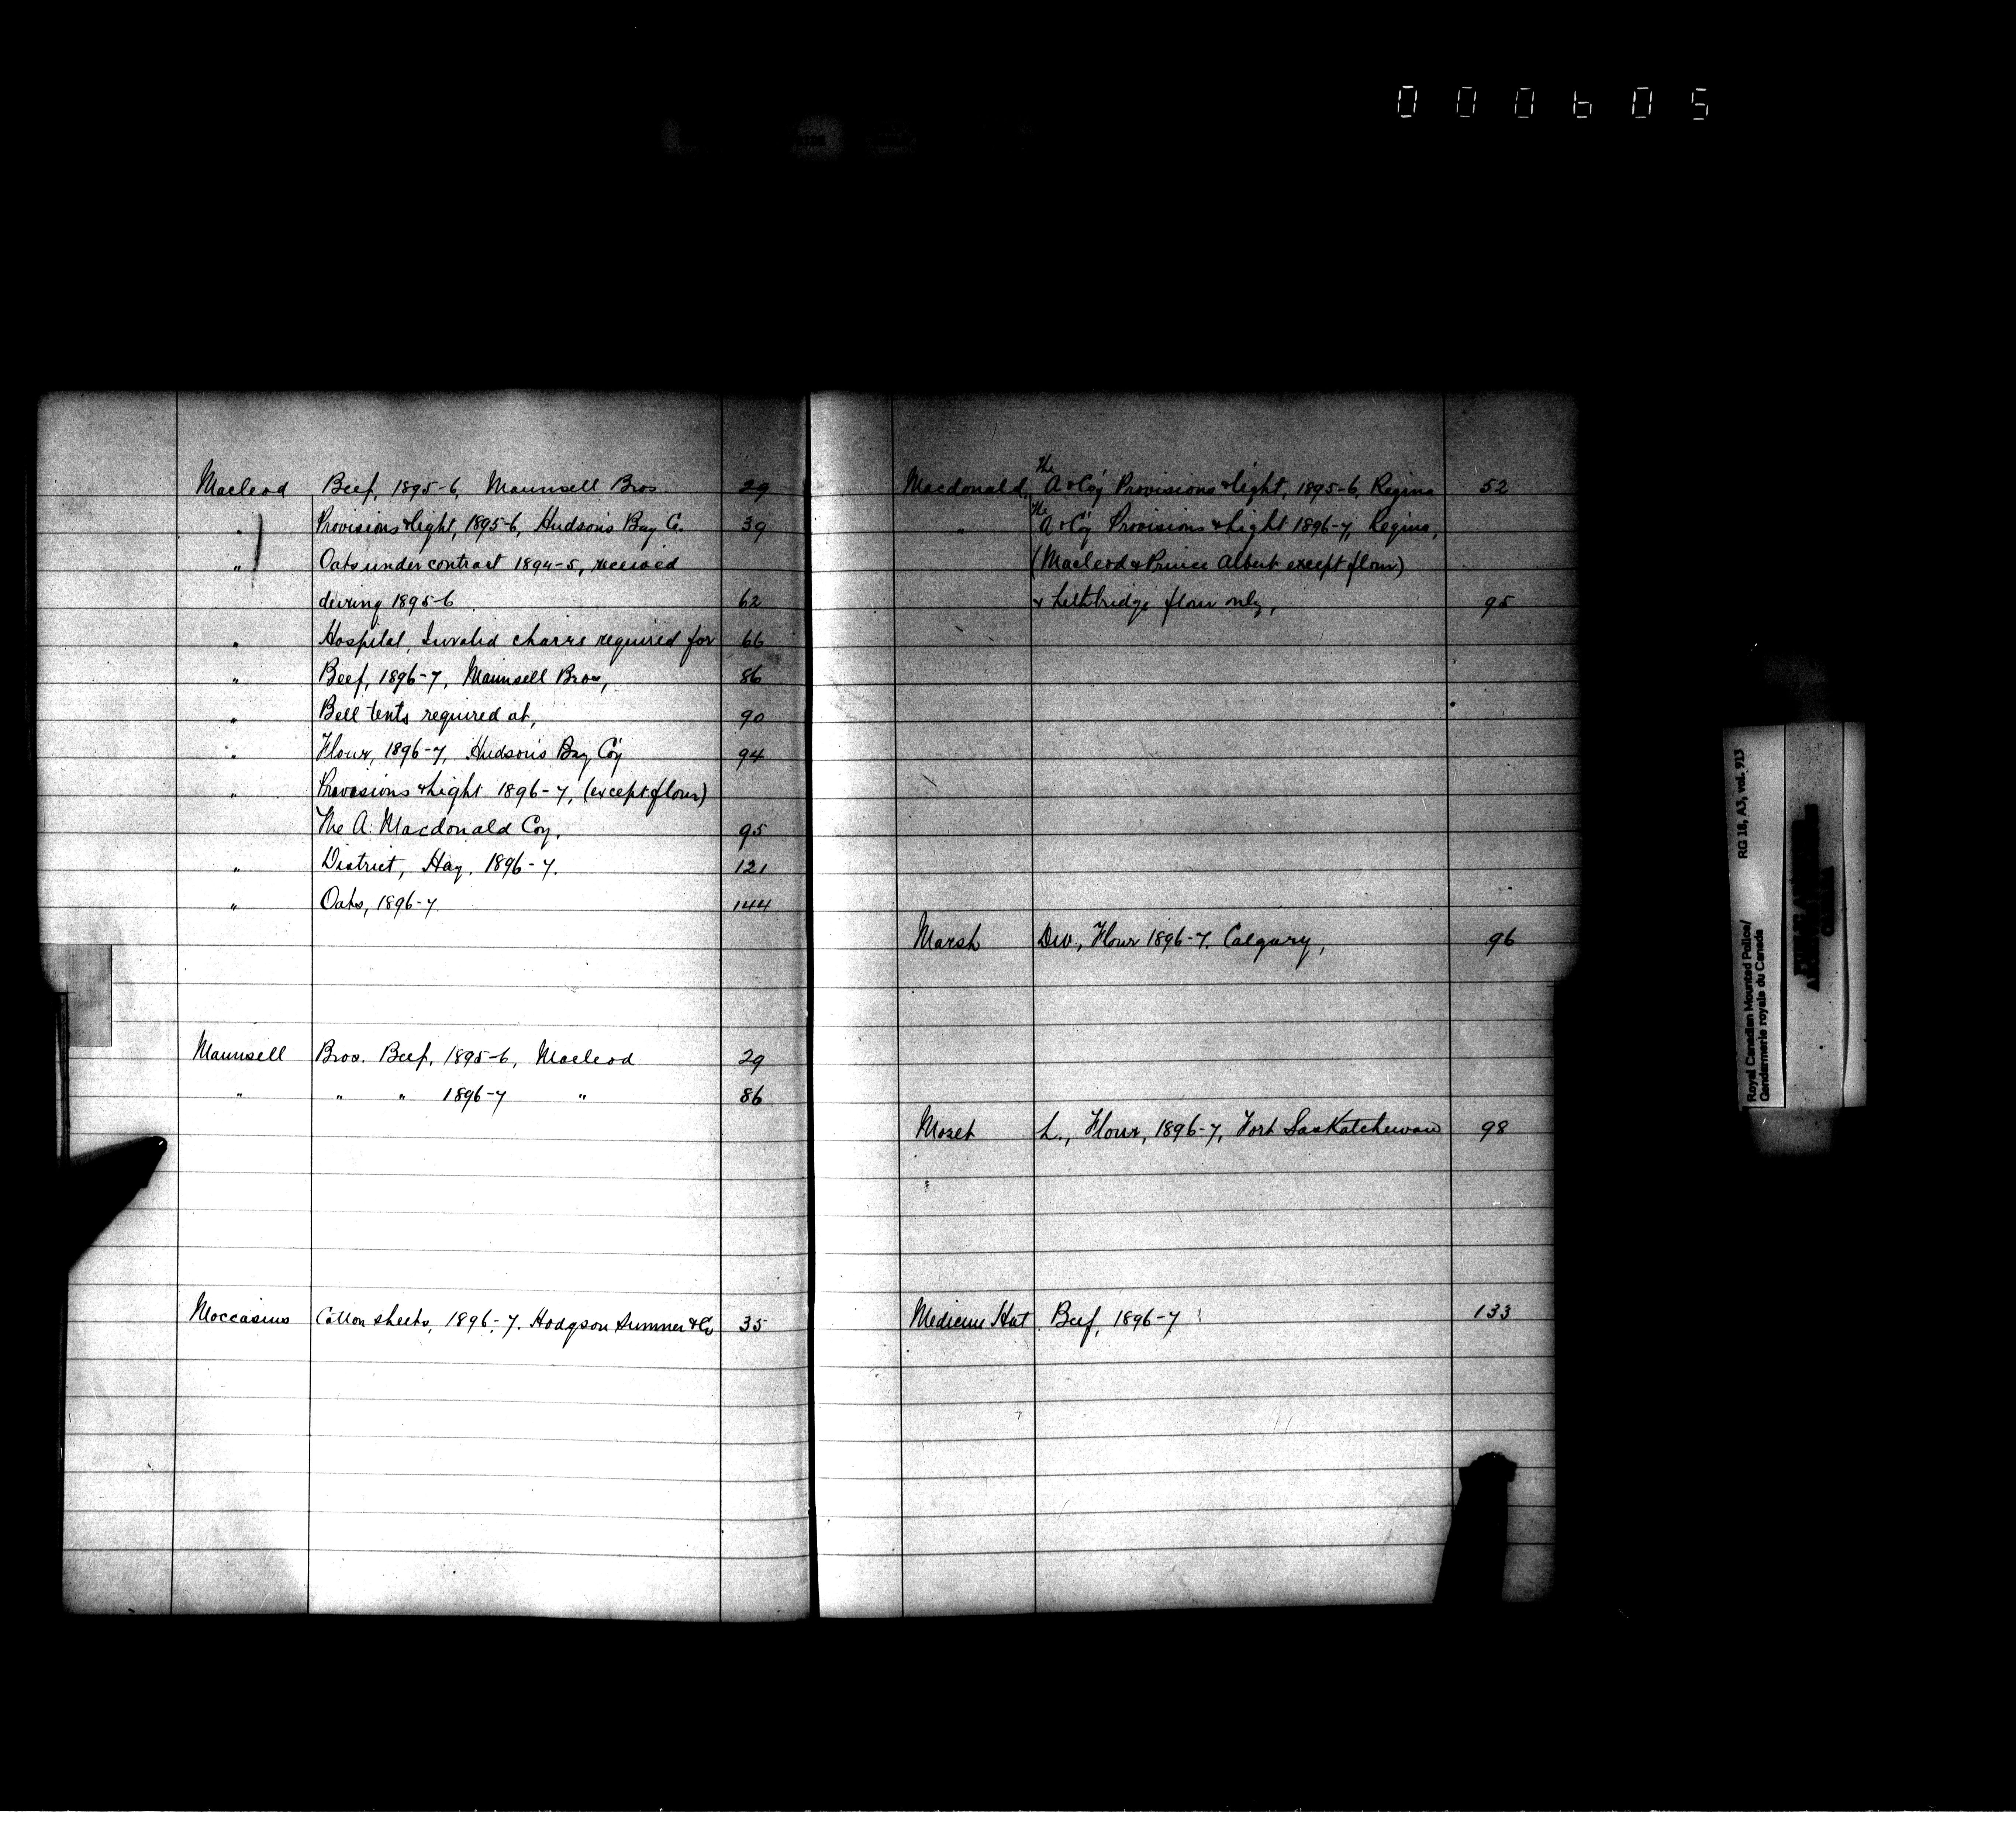 000605
Macleod Beef, 1895-6, Maunsell Bros 29
" Provisions & light, 1895-6, Hudson's Bay Co. 39
" Oats under contract 1894-5, received
during 1895-6 62
" Hospital, Invalid chairs required for 66
" Beef, 1896-7, Maunsell Bros, 86
" Bell tents required at, 90
" Flour, 1896-7, Hudson's Bay Coy 94
" Provisions & Light 1896-7, (except flour)
The A. Macdonald Coy, 95
" District, Hay, 1896-7. 121
" Oats, 1896-7 144
Maunsell Bros. Beef, 1895-6, Macleod 29
" " " 1896-7 " 86
Moccasins Cotton sheets, 1896-7. Hodgson Sumner & Co 35
Macdonald, The A & Coy Provisions & light, 1895-6, Regina 52
" The A & Coy Provisions & Light 1896-7, Regina,
(Macleod & Prince Albert except flour)
& Lethbridge flour only, 95
Marsh Div., Flour 1896-7. Calgary, 96
L., Flour, 1896-7, Fort Saskatchewan 98
Medicine Hat Beef, 1896-7 133
Royal Canadian Mounted Police/ RG 18, A3, vol. 913
Gendarmerie royale du Canada